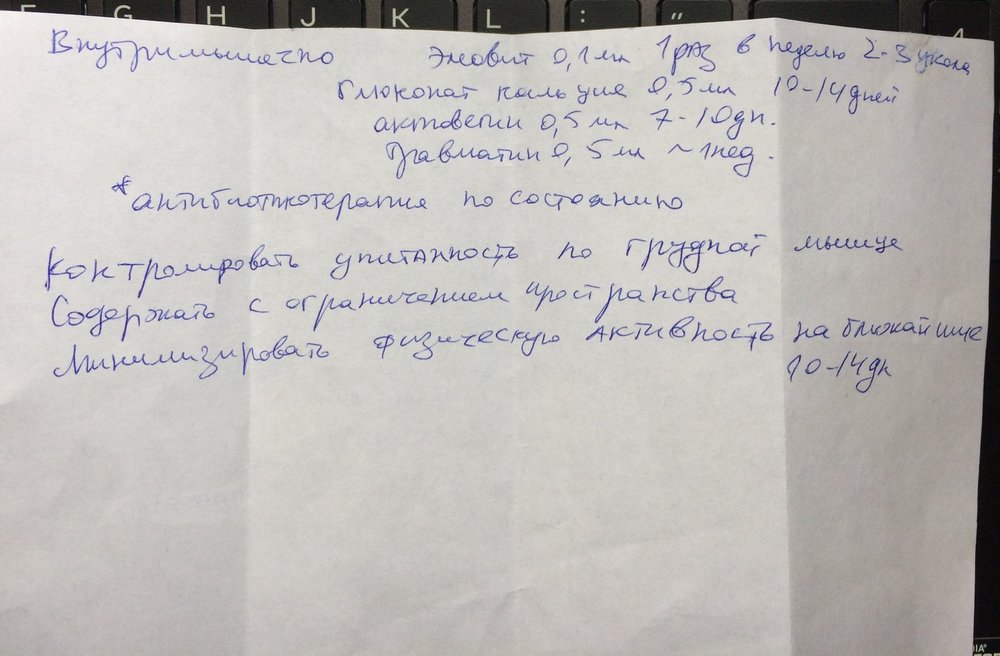 F G H J K L : "
Внутримышечно Эловит 0,1 мл 1 раз в неделю 2-3 укола
Глюконат кальция 0,5 мл 10-14 дней
актовегин 0,5 мл 7-10 дн.
Травматин 0,5 мл ~ 1 нед.
*антибиотикотерапия по состоянию
Контролировать упитанность по грудной мышце
Содержать с ограничением пространства
Минимизировать физическую активность на ближайшие
10-14 дн